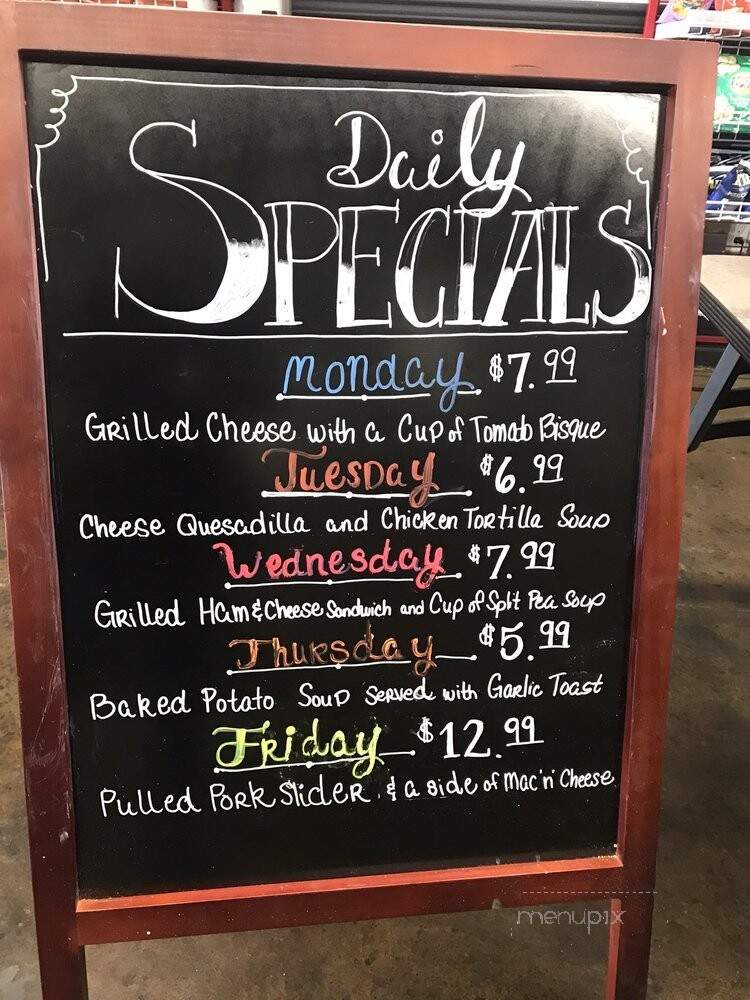 Daily
SPECIALS
Monday $7.99
Grilled Cheese with a Cup of Tomato Bisque
Tuesday $6.99
Cheese Quesadilla and Chicken Tortilla Soup
Wednesday $7.99
Grilled Ham & Cheese Sandwich and Cup of Split Pea Soup
Thursday $5.99
Baked Potato Soup Served with Garlic Toast
Friday $12.99
Pulled Pork Slider & a side of Mac 'n' Cheese
menupix